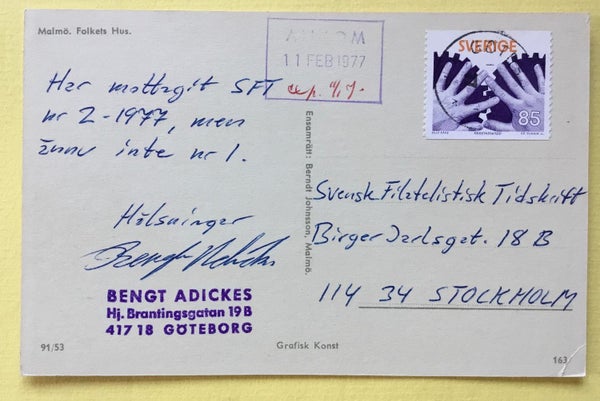 Malmö. Folkets Hus.
ANKOM
11 FEB 1977
SVERIGE
85
Har mottagit SFT
nr 2-1977, men
ännu inte nr 1.
Hälsningar
Bengt Adickes
BENGT ADICKES
Hj. Brantingsgatan 19 B
417 18 GÖTEBORG
Ensamrätt: Berndt Johnsson, Malmö.
Svensk Filatelistisk Tidskrift
Birger Jarlsgat. 18 B
114 34 STOCKHOLM
91/53
Grafisk Konst
163